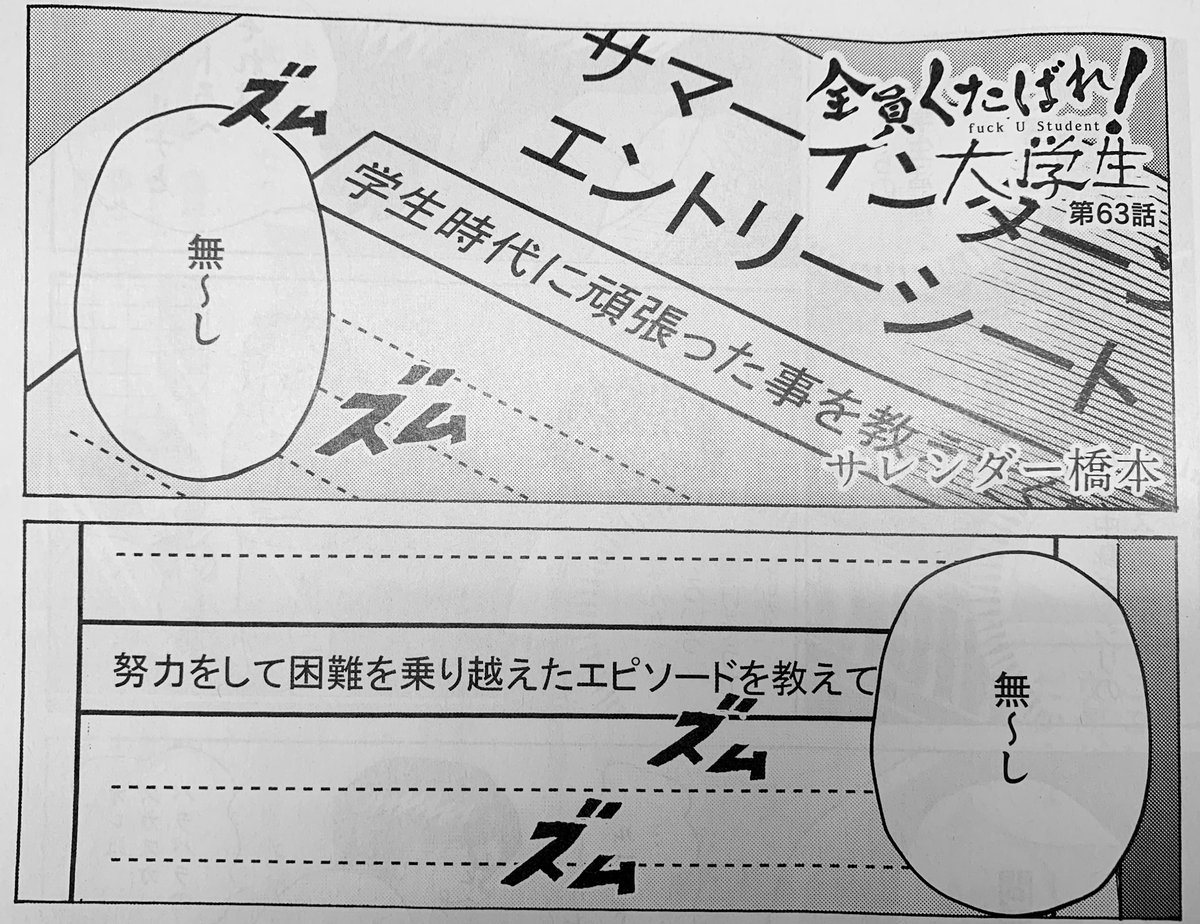 全員くたばれ！
fuck U Student
大学生
第63話
サマーインターン
エントリーシート
学生時代に頑張った事を教え
ズム
無〜し
ズム
サレンダー橋本
無〜し
努力をして困難を乗り越えたエピソードを教えて
ズム
ズム